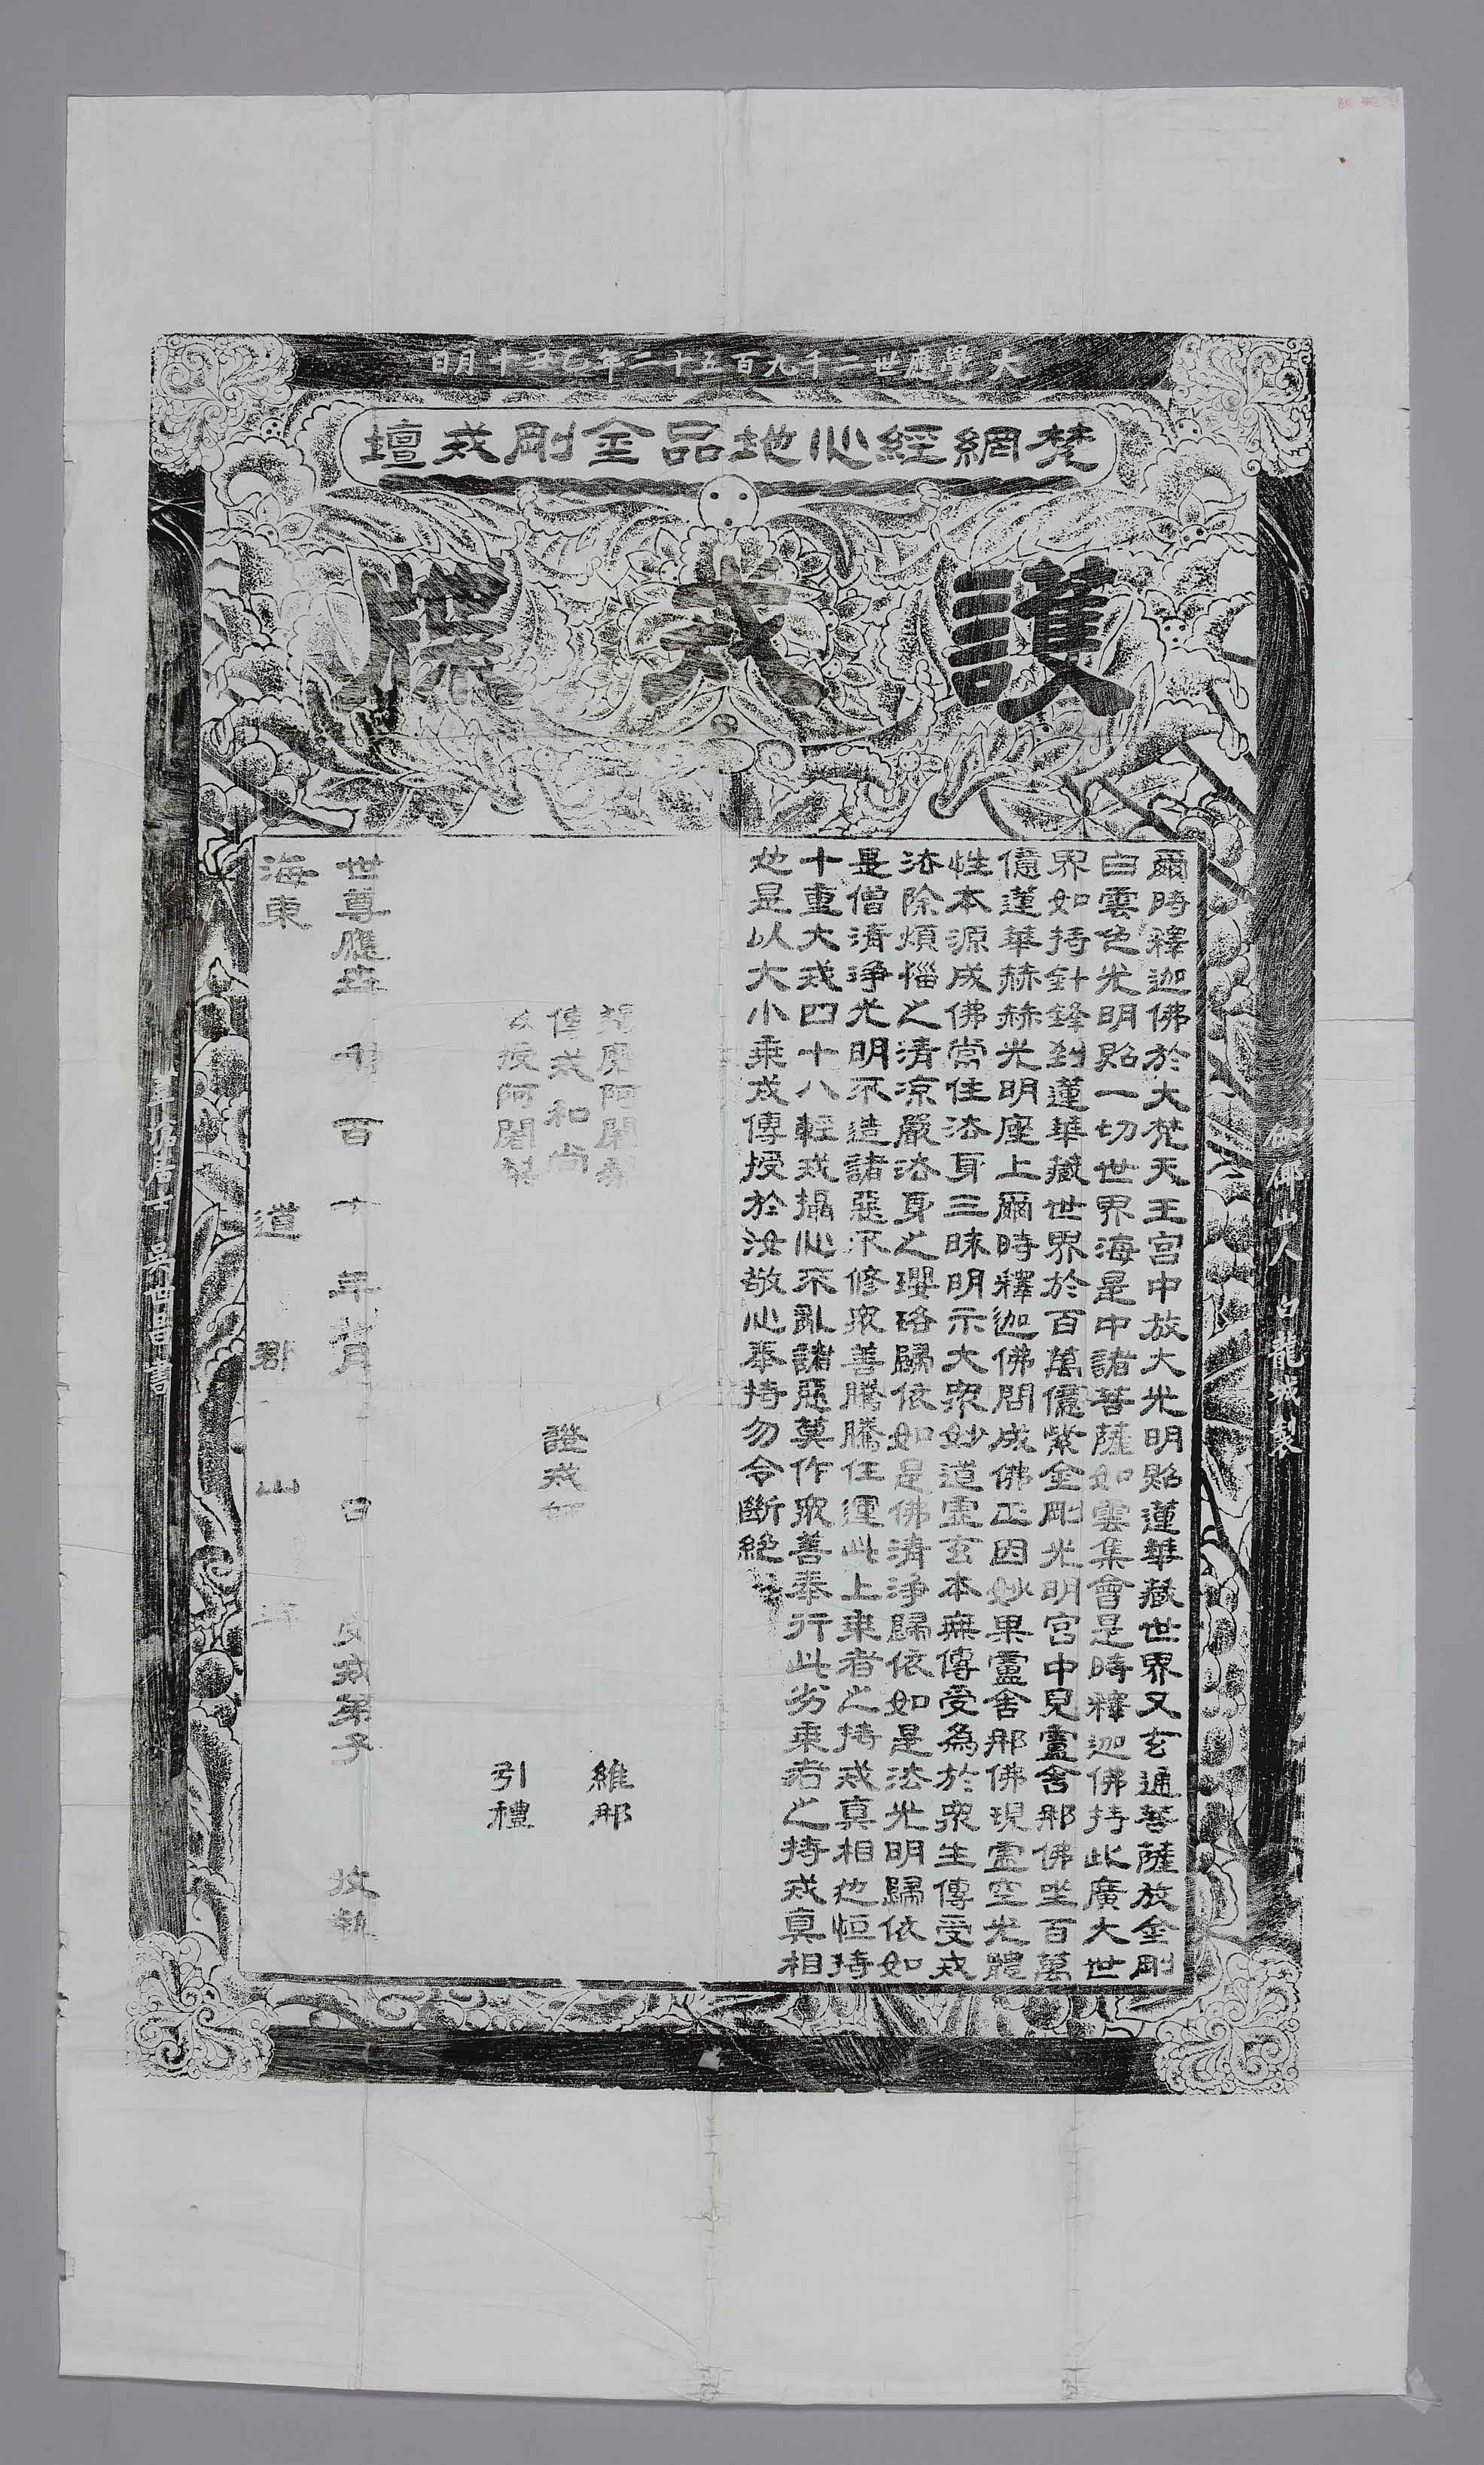 大覺應世二千九百五十二年乙丑十月日
梵網經心地品金剛戒壇
護戒牒
伽倻山人 白龍城製
爾時釋迦佛於大梵天王宮中放大光明照蓮華藏世界又玄通菩薩放金剛
白雲色光明照一切世界海是中諸菩薩如雲集會是時釋迦佛持此廣大世
界如持針鋒到蓮華藏世界於百萬億紫金剛光明宮中見盧舍那佛坐百萬
億蓮華赫赫光明座上爾時釋迦佛問成佛正因妙果盧舍那佛現虛空光體
性本源成佛常住法身三昧明示大衆妙道虛玄本無傳受爲於衆生傳受戒
法除煩惱之清凉嚴法身之瓔珞歸依如是佛清淨歸依如是法光明歸依如
是僧清淨光明不造諸惡不修衆善騰騰任運此上乘者之持戒眞相也恒持
十重大戒四十八輕戒攝心不亂諸惡莫作衆善奉行此劣乘者之持戒眞相
也是以大小乘戒傳授於汝敬心奉持勿令斷絶
羯磨阿闍梨 維那
傳戒和尚 證戒師
敎授阿闍梨 引禮
世尊應世 千 百 十 年 月 日 受戒弟子 收執
海東 道 郡 山 寺
居士 吳世昌書